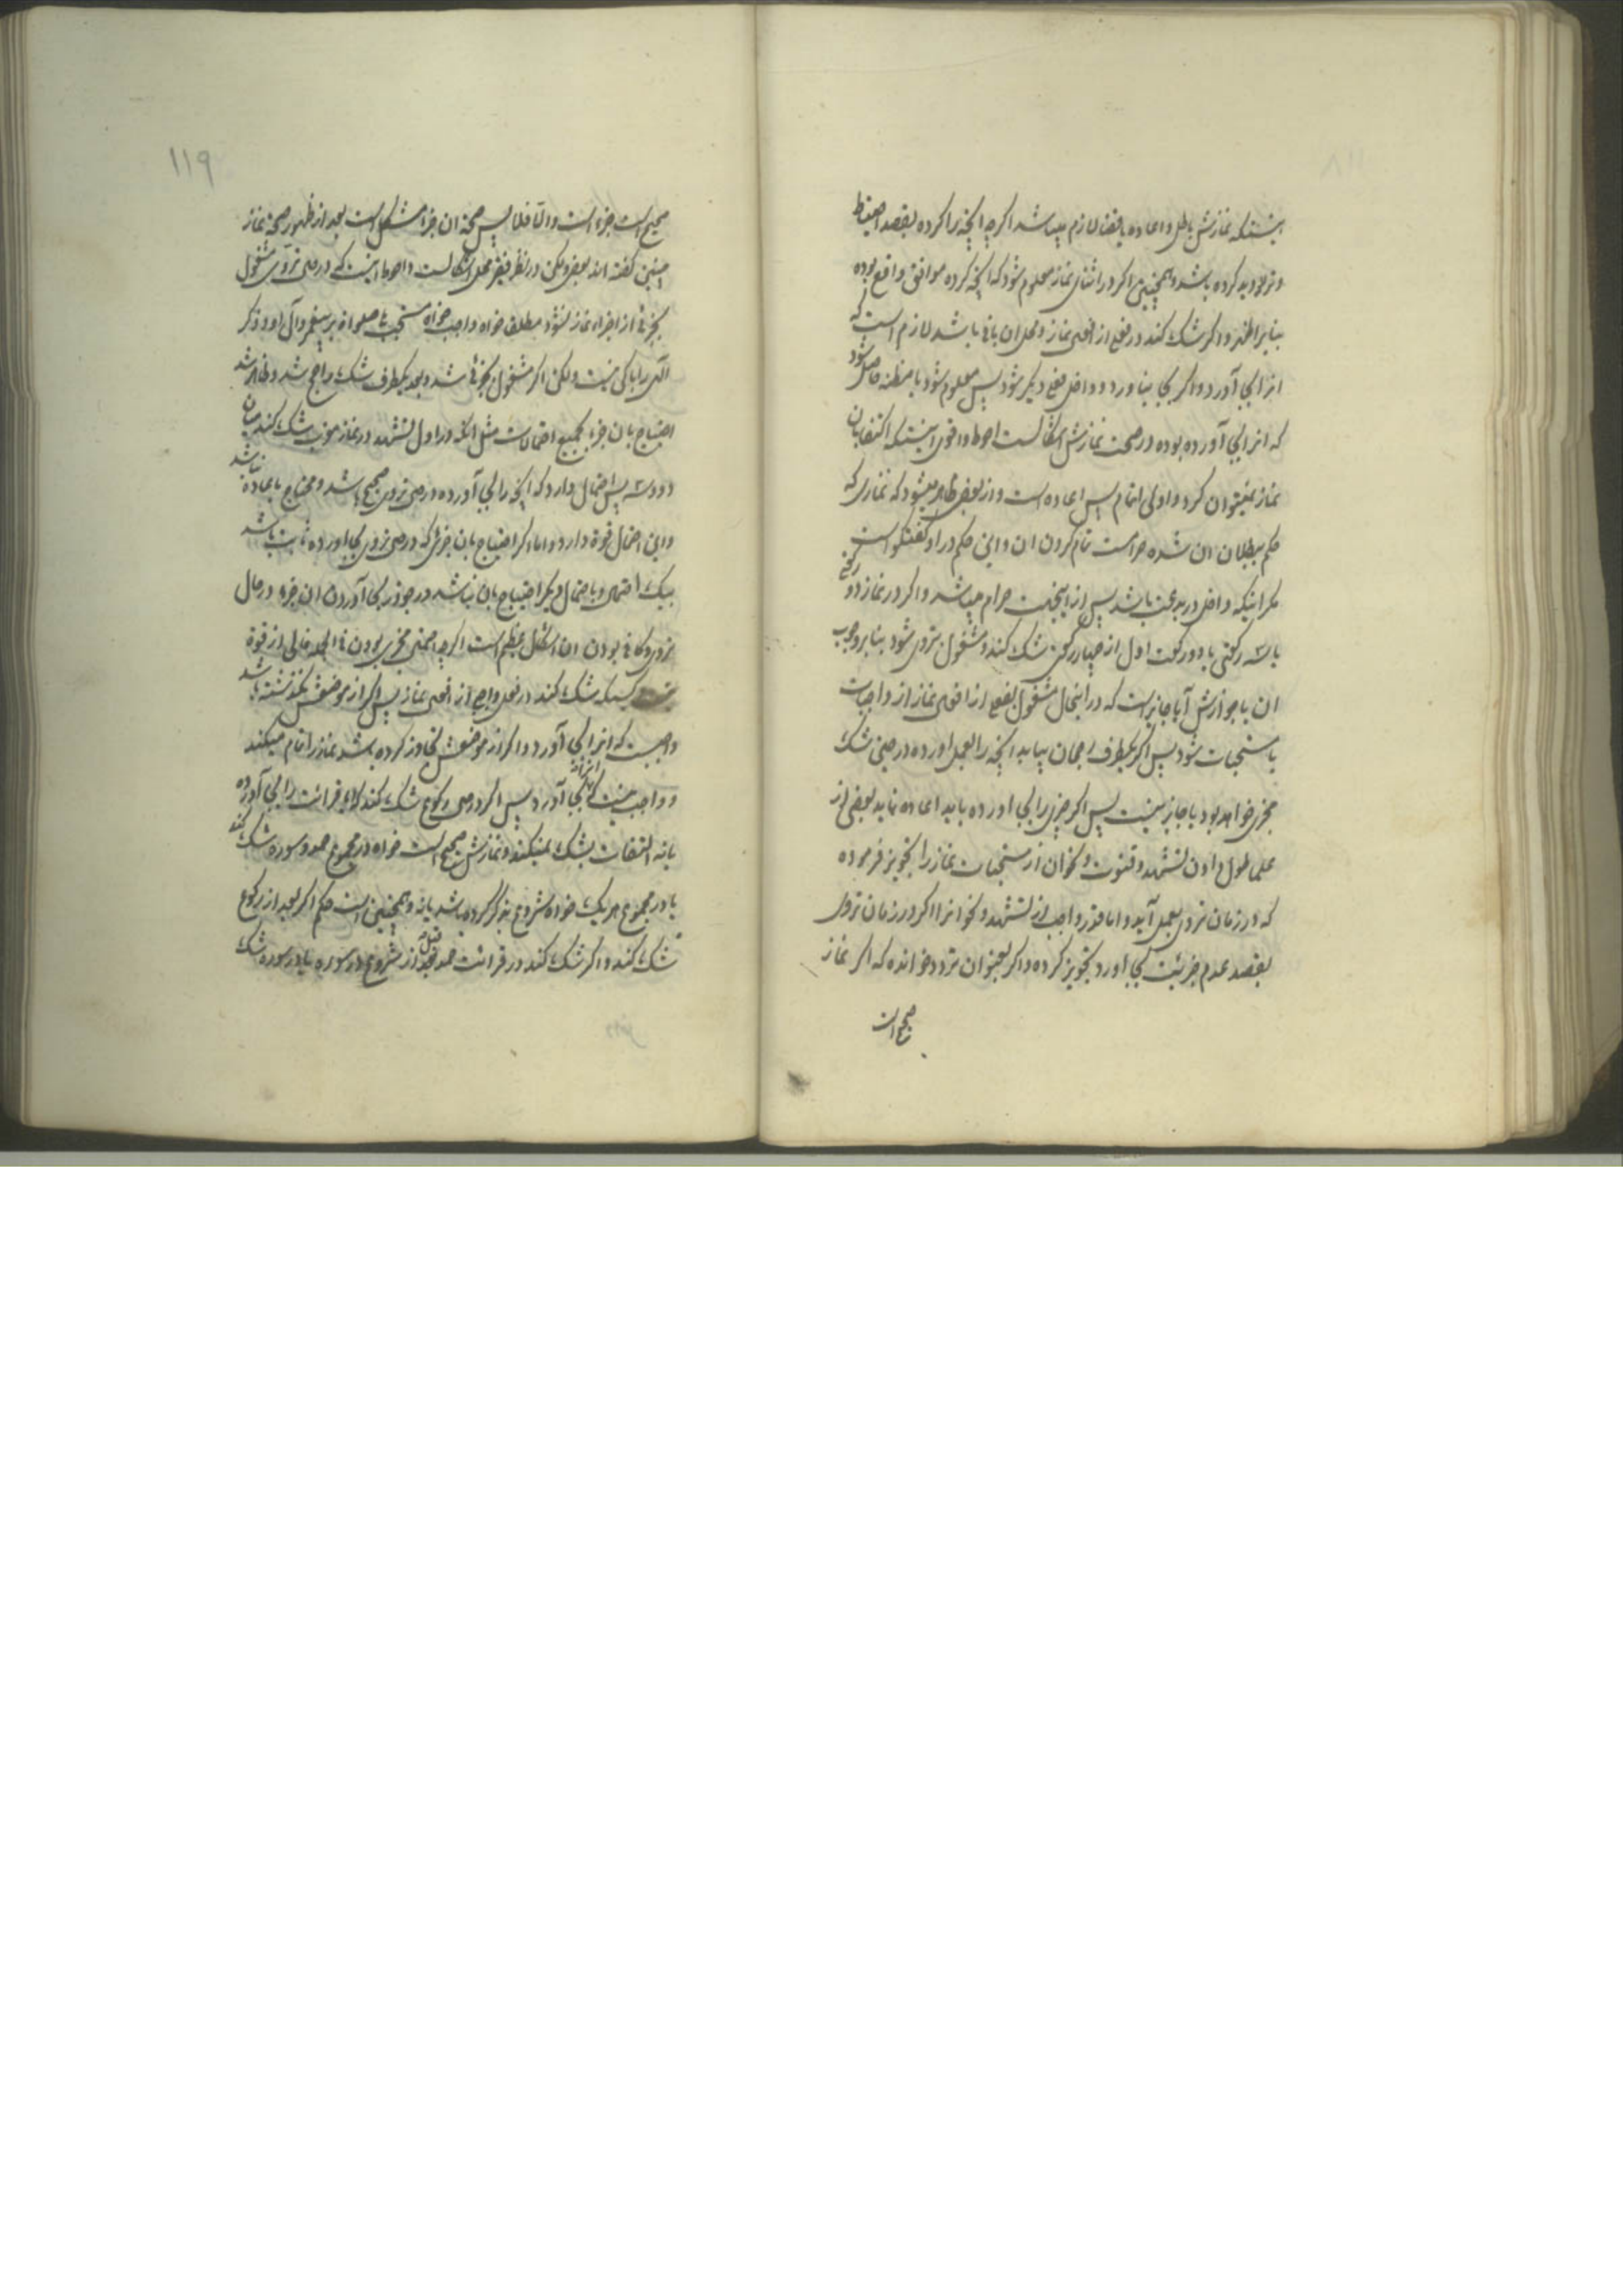 اینستکه نمازش باطل و اعاده یا قضا لازم میباشد اگرچه آنچه را کرده بقصد احتیاط
و تردید کرده باشد و همچنین اگر در اثنای نماز معلوم شود که آنچه کرده موافق واقع بوده
بنابر اظهر و اگر شک کند در فعلی از افعال نماز و محل ان باقی باشد لازم است که
انرا بجا آورد و اگر بجا نیاورد و داخل فعلی دیگر شود پس معلوم شود یا مظنه حاصل شود
که انرا بجا آورده بوده در صحت نمازش اشکالست احوط و اقوی اینستکه اکتفا بان
نماز نمیتوان کرد و اولی اتمام پس اعاده است و از بعضی ظاهر میشود که نمازی که
حکم ببطلان ان شده حرامست تمام کردن ان و این حکم در او گفتگو است
مگر اینکه داخل در بدعت باشد پس از اینجهت حرام میباشد و اگر در نماز دو رکعتی
یا سه رکعتی یا دو رکعت اول از چهار رکعتی شک کند و مشغول تروی شود بنابر وجوب
ان یا جوازش آیا جایز است که در اینحال مشغول بفعلی از افعال نماز از واجبات
یا مستحبات شود پس اگر یکطرف رجحان بیابد آنچه را بعمل اورده در حین شک
مجزی خواهد بود یا جایز نیست پس اگر چیزی را بجا اورده باید اعاده نماید بعضی از
علما طول دادن تشهد و قنوت و نحو ان از مستحبات نماز را تجویز فرموده
که در زمان تروی بعمل آید و اما قدر واجب از تشهد و نحو انرا اگر در زمان تروی
بقصد عدم جزئیت بجا اورد تجویز کرده و اگر بعنوان تردد خوانده که اگر نماز
صحیح است
۱۱۹
صحیح است جزء است و الّا فلا پس صحة ان جزء مشکل است بعد از ظهور صحة نماز
چنین گفته اند بعضی ولکن در نظر فقیر محل اشکالست و احوط اینست که در حین تروی مشغول
بجزئی از اجزاء نماز نشود مطلقا خواه واجب خواه مستحب یا صلواة بر پیغمبر و آل او و ذکر
الهی را باکی نیست ولکن اگر مشغول بجزئی شد و بعد یکطرف شک راجح شد و ظاهر شد
احتیاج بان جزء بجمیع احتمالات مثل انکه در اول تشهد در نماز مغرب شک کند میان
دو و سه پس احتمال دارد که آنچه را بجا آورده در حین تروی صحیح باشد و محتاج باعاده نباشد
و این احتمال قوة دارد و اما اگر احتیاج بان جزئی که در حین تروی بجا اورده ثابت باشد
بیک احتمال و با احتمال دیگر احتیاج بان نباشد در جواز بجا آوردن ان جزء در حال
تروی و کافی بودن ان اشکال عظیم است اگرچه مجزی بودن فی الجمله خالی از قوة
کسیکه شک کند در فعل واجبی از افعال نماز پس اگر از موضعش نگذشته باشد
واجبست که انرا بجا آورد و اگر از موضعش تجاوز کرده باشد نماز را تمام میکند
و واجب نیست که انرا بجا آورد پس اگر در حین رکوع شک کند که ایا قرائت را بجا آورده
یا نه التفات بشک نمیکند و نمازش صحیح است خواه در مجموع حمد و سوره شک کند
یا در مجموع هر یک خواه شروع بذکر کرده باشد یا نه و همچنین است حکم اگر بعد از رکوع
شک کند و اگر شک کند در قرائت حمد قبل از شروع در سوره یا در سوره شک